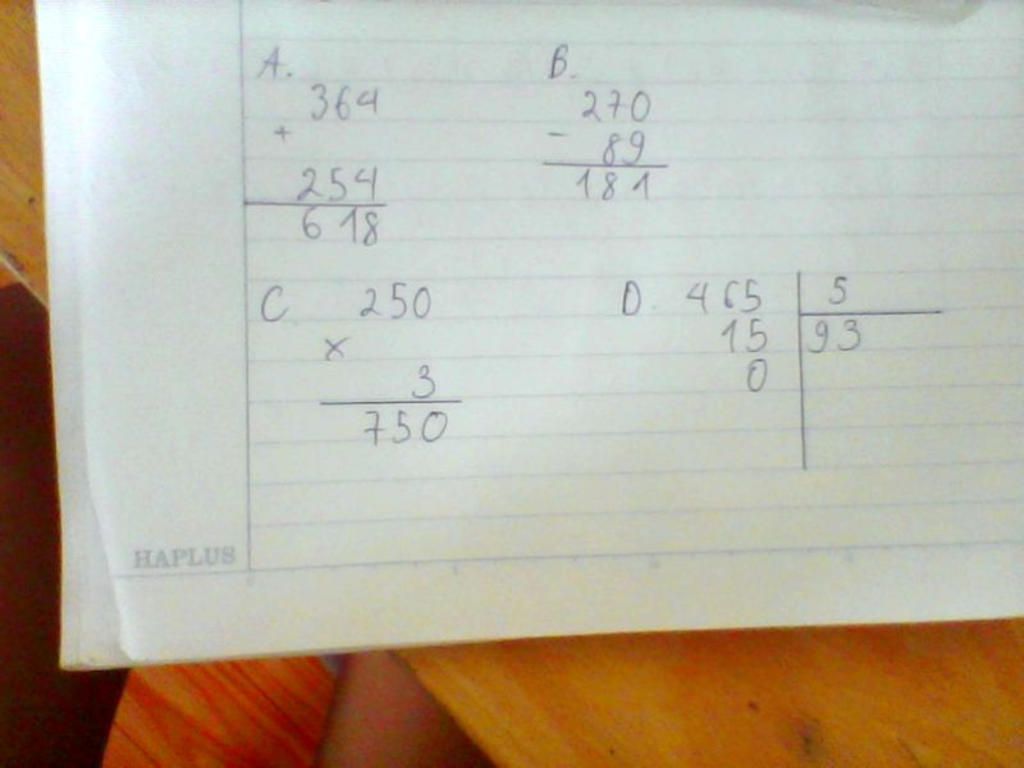 A.
364
+
254
618
B.
270
- 89
181
C 250
x
3
750
D. 465 5
15 93
0
HAPLUS